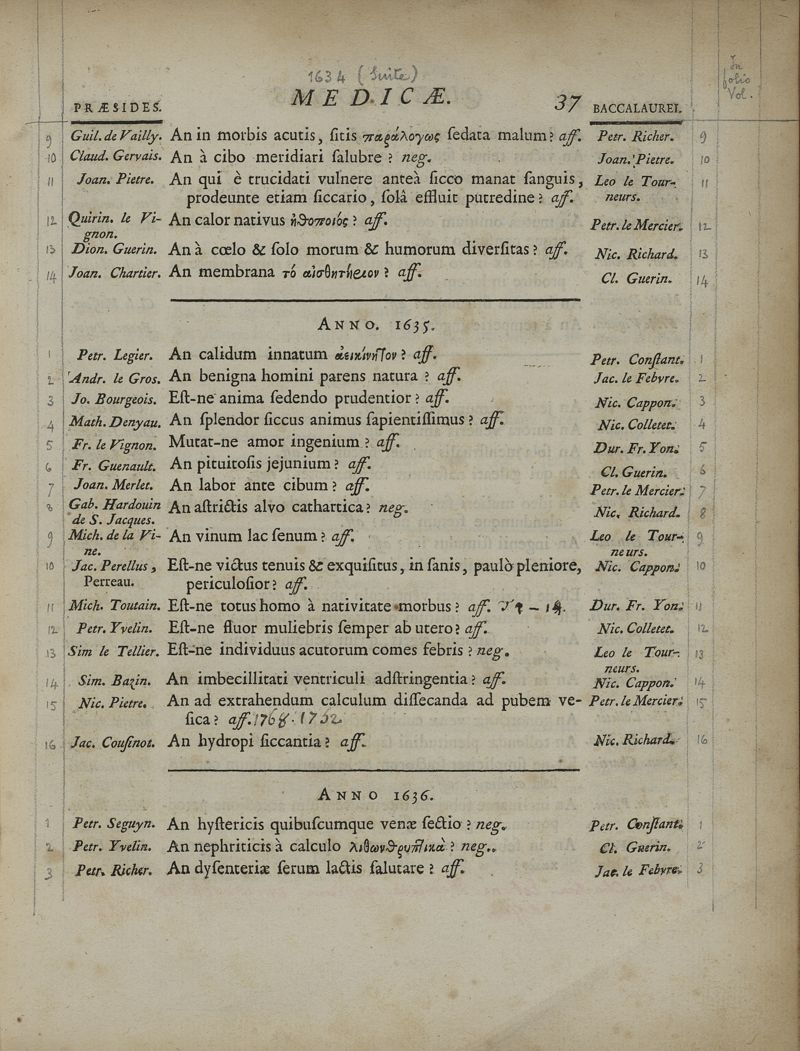 1634 (Suite)
In folio Vol.
PRÆSIDES. MEDICÆ. 37 BACCALAUREI.
9 Guil. de Vailly. An in morbis acutis, sitis παραλόγως sedata malum? aff. Petr. Richer. 9
10 Claud. Gervais. An à cibo meridiari salubre? neg. Joan. Pietre. 10
11 Joan. Pietre. An qui è trucidati vulnere anteà sicco manat sanguis, Leo le Tour- 11
prodeunte etiam siccario, solâ effluit putredine? aff. neurs.
12 Quirin. le Vi- An calor nativus ἠθοποιός? aff. Petr. le Mercier. 12
gnon.
13 Dion. Guerin. An à cœlo & solo morum & humorum diversitas? aff. Nic. Richard. 13
14 Joan. Chartier. An membrana τό αἰσθητήριον? aff. Cl. Guerin. 14
ANNO. 1635.
1 Petr. Legier. An calidum innatum ἀεικίνητον? aff. Petr. Constant. 1
2 Andr. le Gros. An benigna homini parens natura? aff. Jac. le Febvre. 2
3 Jo. Bourgeois. Est-ne anima sedendo prudentior? aff. Nic. Cappon. 3
4 Math. Denyau. An splendor siccus animus sapientissimus? aff. Nic. Colletet. 4
5 Fr. le Vignon. Mutat-ne amor ingenium? aff. Dur. Fr. Yon. 5
6 Fr. Guenault. An pituitosis jejunium? aff. Cl. Guerin. 6
7 Joan. Merlet. An labor ante cibum? aff. Petr. le Mercier. 7
8 Gab. Hardouin An astrictis alvo cathartica? neg. Nic. Richard. 8
de S. Jacques.
9 Mich. de la Vi- An vinum lac senum? aff. Leo le Tour- 9
ne. neurs.
10 Jac. Perellus, Est-ne victus tenuis & exquisitus, in sanis, paulò pleniore, Nic. Cappon. 10
Perreau. periculosior? aff.
11 Mich. Toutain. Est-ne totus homo à nativitate morbus? aff. Dur. Fr. Yon. 11
12 Petr. Yvelin. Est-ne fluor muliebris semper ab utero? aff. Nic. Colletet. 12
13 Sim le Tellier. Est-ne individuus acutorum comes febris? neg. Leo le Tour- 13
neurs.
14 Sim. Bazin. An imbecillitati ventriculi adstringentia? aff. Nic. Cappon. 14
15 Nic. Pietre. An ad extrahendum calculum dissecanda ad pubem ve- Petr. le Mercier. 15
sica? aff.
16 Jac. Cousinot. An hydropi siccantia? aff. Nic. Richard. 16
ANNO 1636.
1 Petr. Seguyn. An hystericis quibuscumque venæ sectio? neg. Petr. Constant. 1
2 Petr. Yvelin. An nephriticis à calculo λιθωνθρυπτικά? neg. Cl. Guerin. 2
3 Petr. Richer. An dysenteriæ serum lactis salutare? aff. Jac. le Febvre. 3